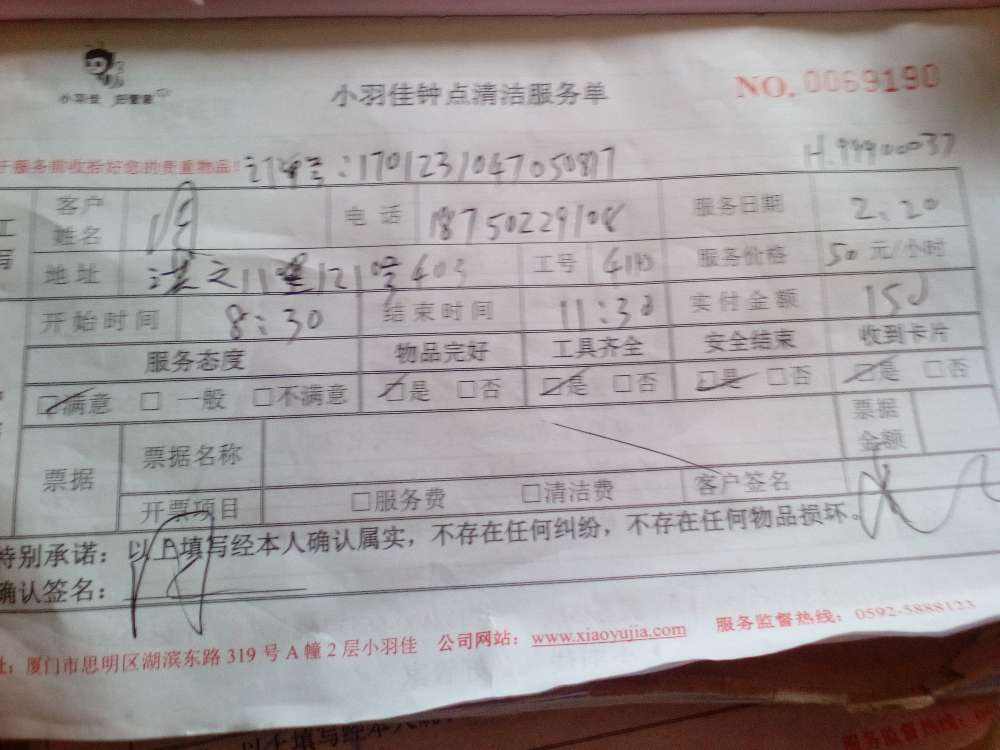 小羽佳 好管家
小羽佳钟点清洁服务单
NO. 0069190
服务前收拾好您的贵重物品！
订单号：170123104705087
H.99900037
客户姓名 电话 18750229108 服务日期 2.20
地址 11 121号403 工号 服务价格 50元/小时
开始时间 8:30 结束时间 11:30 实付金额 150
服务态度 物品完好 工具齐全 安全结束 收到卡片
☑满意 □ 一般 □不满意 ☑是 □否 ☑是 □否 ☑是 □否 ☑是 □否
票据 票据名称 票据金额
开票项目 □服务费 □清洁费 客户签名
特别承诺：以上填写经本人确认属实，不存在任何纠纷，不存在任何物品损坏。
确认签名：
址：厦门市思明区湖滨东路 319 号 A 幢 2 层小羽佳 公司网站：www.xiaoyujia.com 服务监督热线：0592-5888123